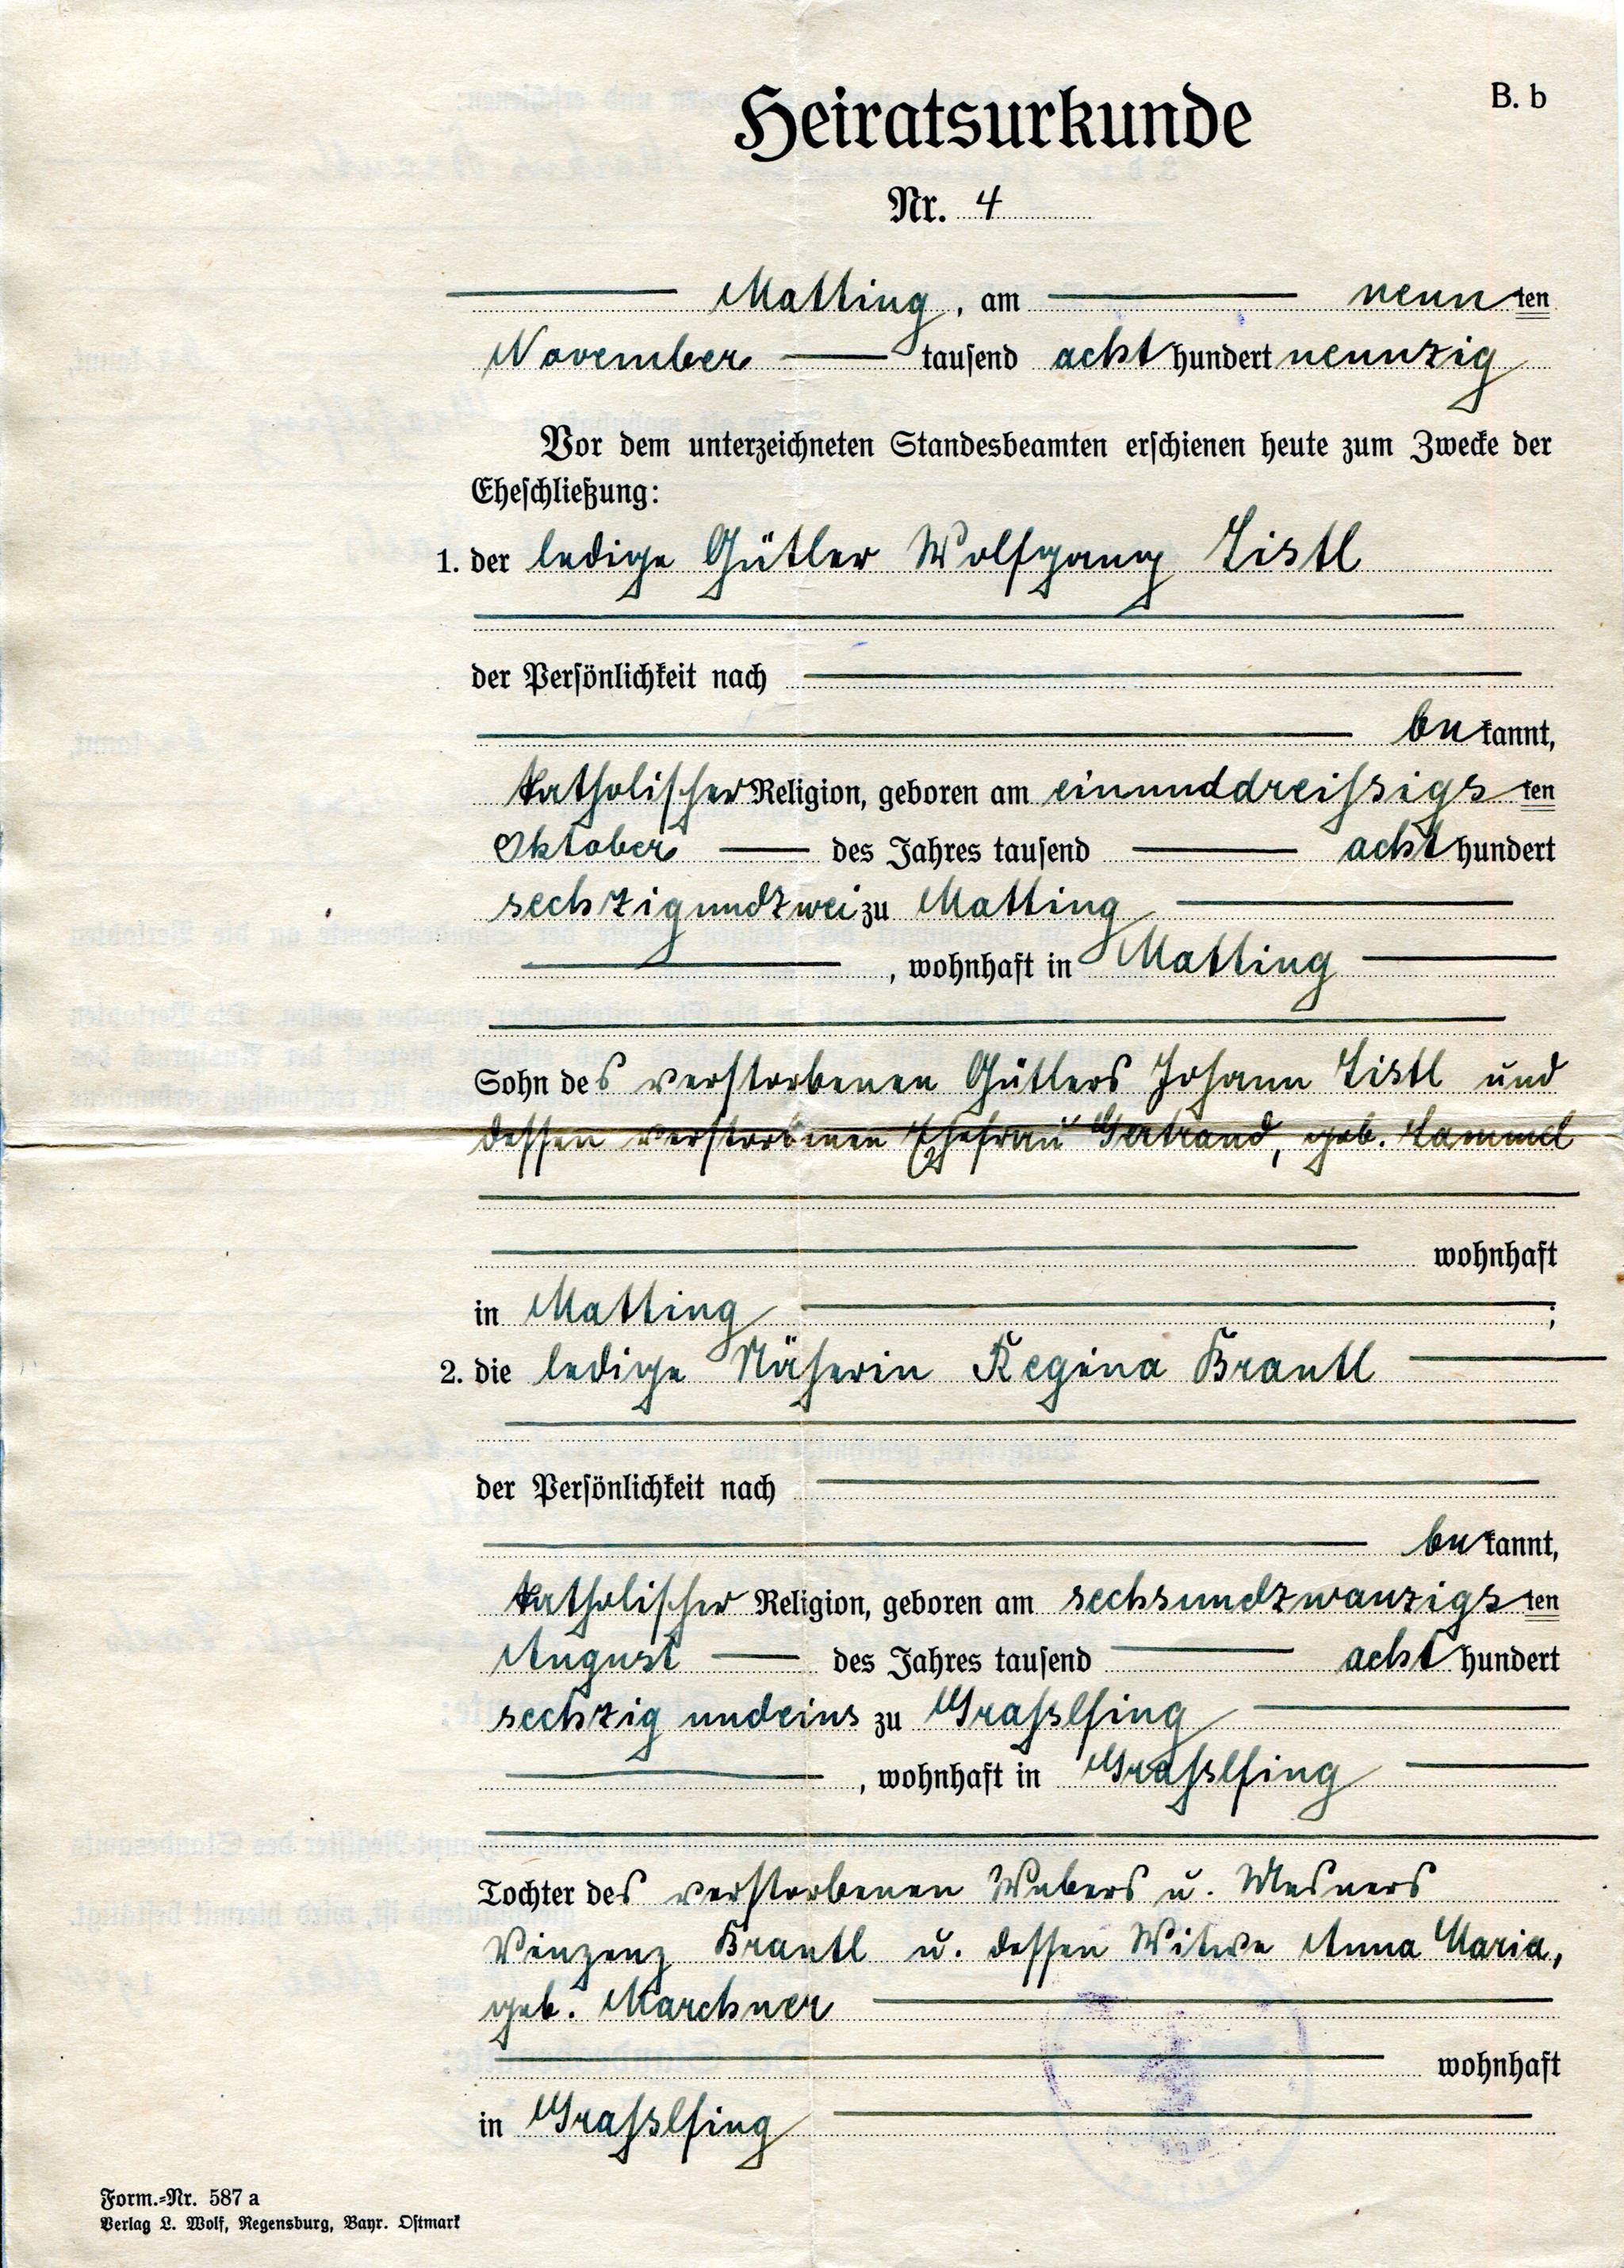 B. b
Heiratsurkunde
Nr. 4
Matting, am neunten
November tausend achthundert neunzig
Vor dem unterzeichneten Standesbeamten erschienen heute zum Zwecke der
Eheschließung:
1. der ledige Gütler Wolfgang Listl
der Persönlichkeit nach
bekannt,
katholischer Religion, geboren am einunddreißigsten
Oktober des Jahres tausend achthundert
sechzigundzwei zu Matting
, wohnhaft in Matting
Sohn des verstorbenen Gütlers Johann Listl und
dessen verstorbenen Ehefrau Gertraud, geb. Lammel
wohnhaft
in Matting ;
2. die ledige Näherin Regina Brantl
der Persönlichkeit nach
bekannt,
katholischer Religion, geboren am sechsundzwanzigsten
August des Jahres tausend achthundert
sechzig undeins zu Graßlfing
, wohnhaft in Graßlfing
Tochter des verstorbenen Webers u. Mesners
Vinzenz Brantl u. dessen Witwe Anna Maria,
geb. Marchner
wohnhaft
in Graßlfing
Form.-Nr. 587 a
Verlag L. Wolf, Regensburg, Bayr. Ostmark